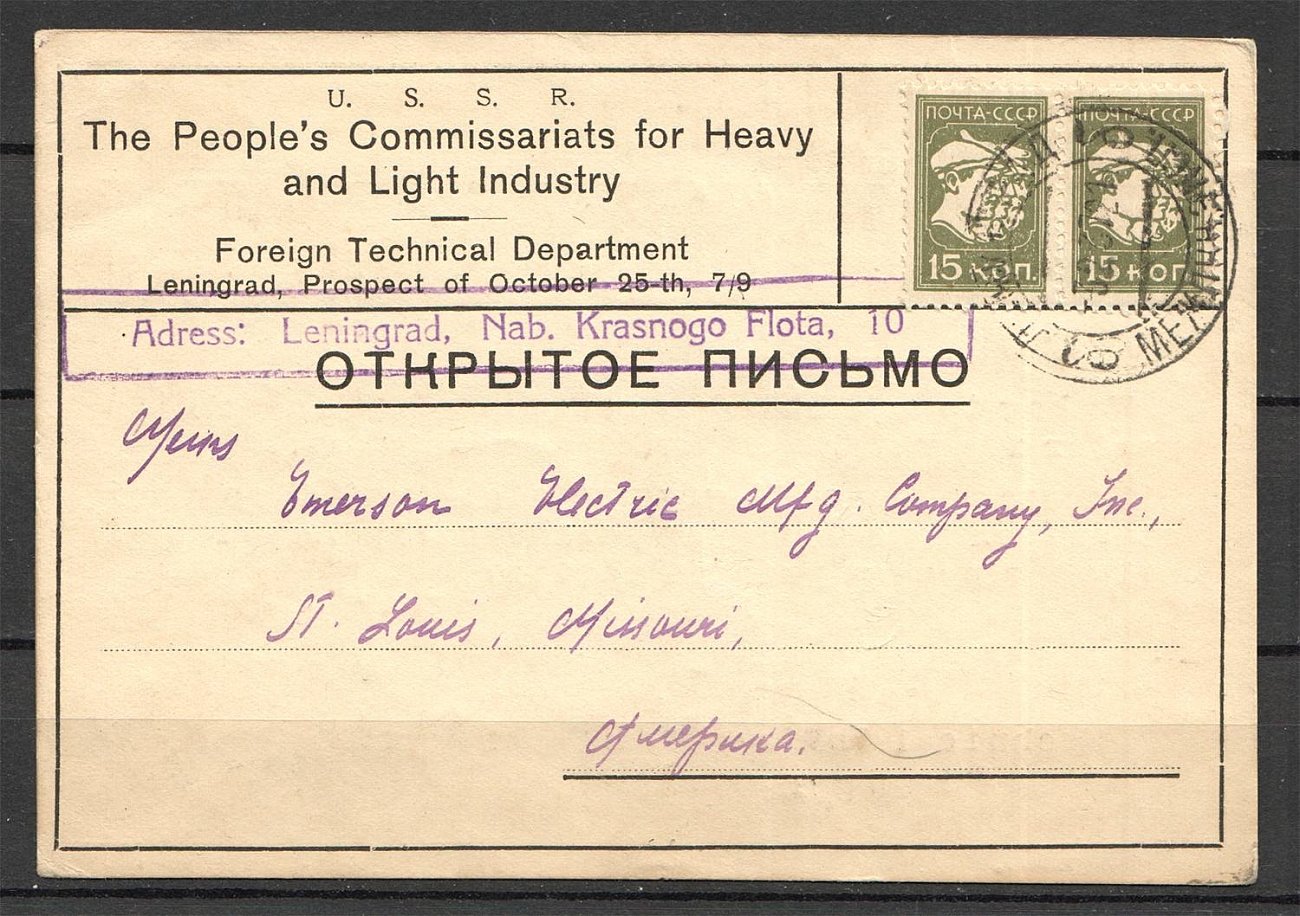 U. S. S. R.
The People's Commissariats for Heavy
and Light Industry
Foreign Technical Department
Leningrad, Prospect of October 25-th, 7/9
Adress: Leningrad, Nab. Krasnogo Flota, 10
ПОЧТА-СССР ПОЧТА-СССР
15 КОП. 15 КОП.
ОТКРЫТОЕ ПИСЬМО
Emerson Electric Mfg. Company, Inc.,
St. Louis, Missouri,
Америка.